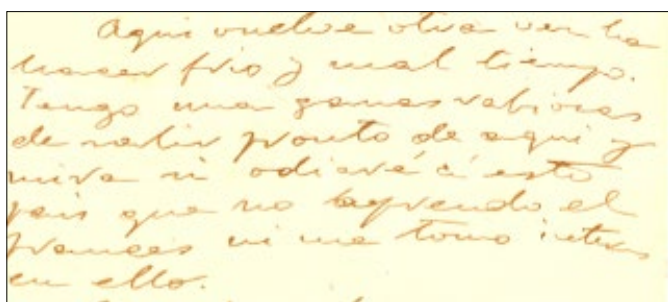 Aqui vuelve otra vez ha
hacer frio y mal tiempo.
Tengo una ganas rabiosas
de salir pronto de aqui y
mira si odiaré á este
pais que no aprendo el
frances ni me tomo interes
en ello.